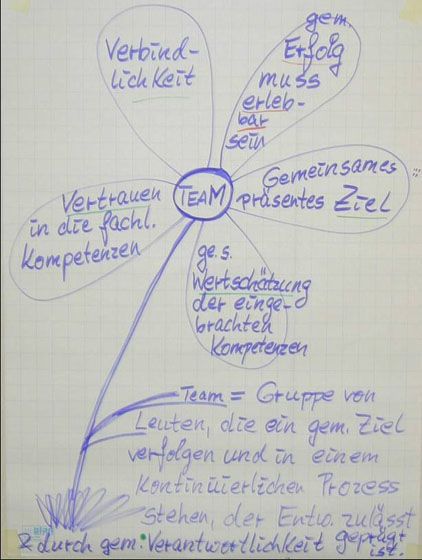 Verbind-
lichkeit
gem.
Erfolg
muss
erleb-
bar
sein
Gemeinsames
präsentes Ziel
TEAM
Vertrauen
in die fachl.
Kompetenzen
ge.s.
Wertschätzung
der einge-
brachten
Kompetenzen
Team = Gruppe von
Leuten, die ein gem. Ziel
verfolgen und in einem
kontinuierlichen Prozess
stehen, der Entw. zulässt
& durch gem. Verantwortlichkeit geprägt
ist.